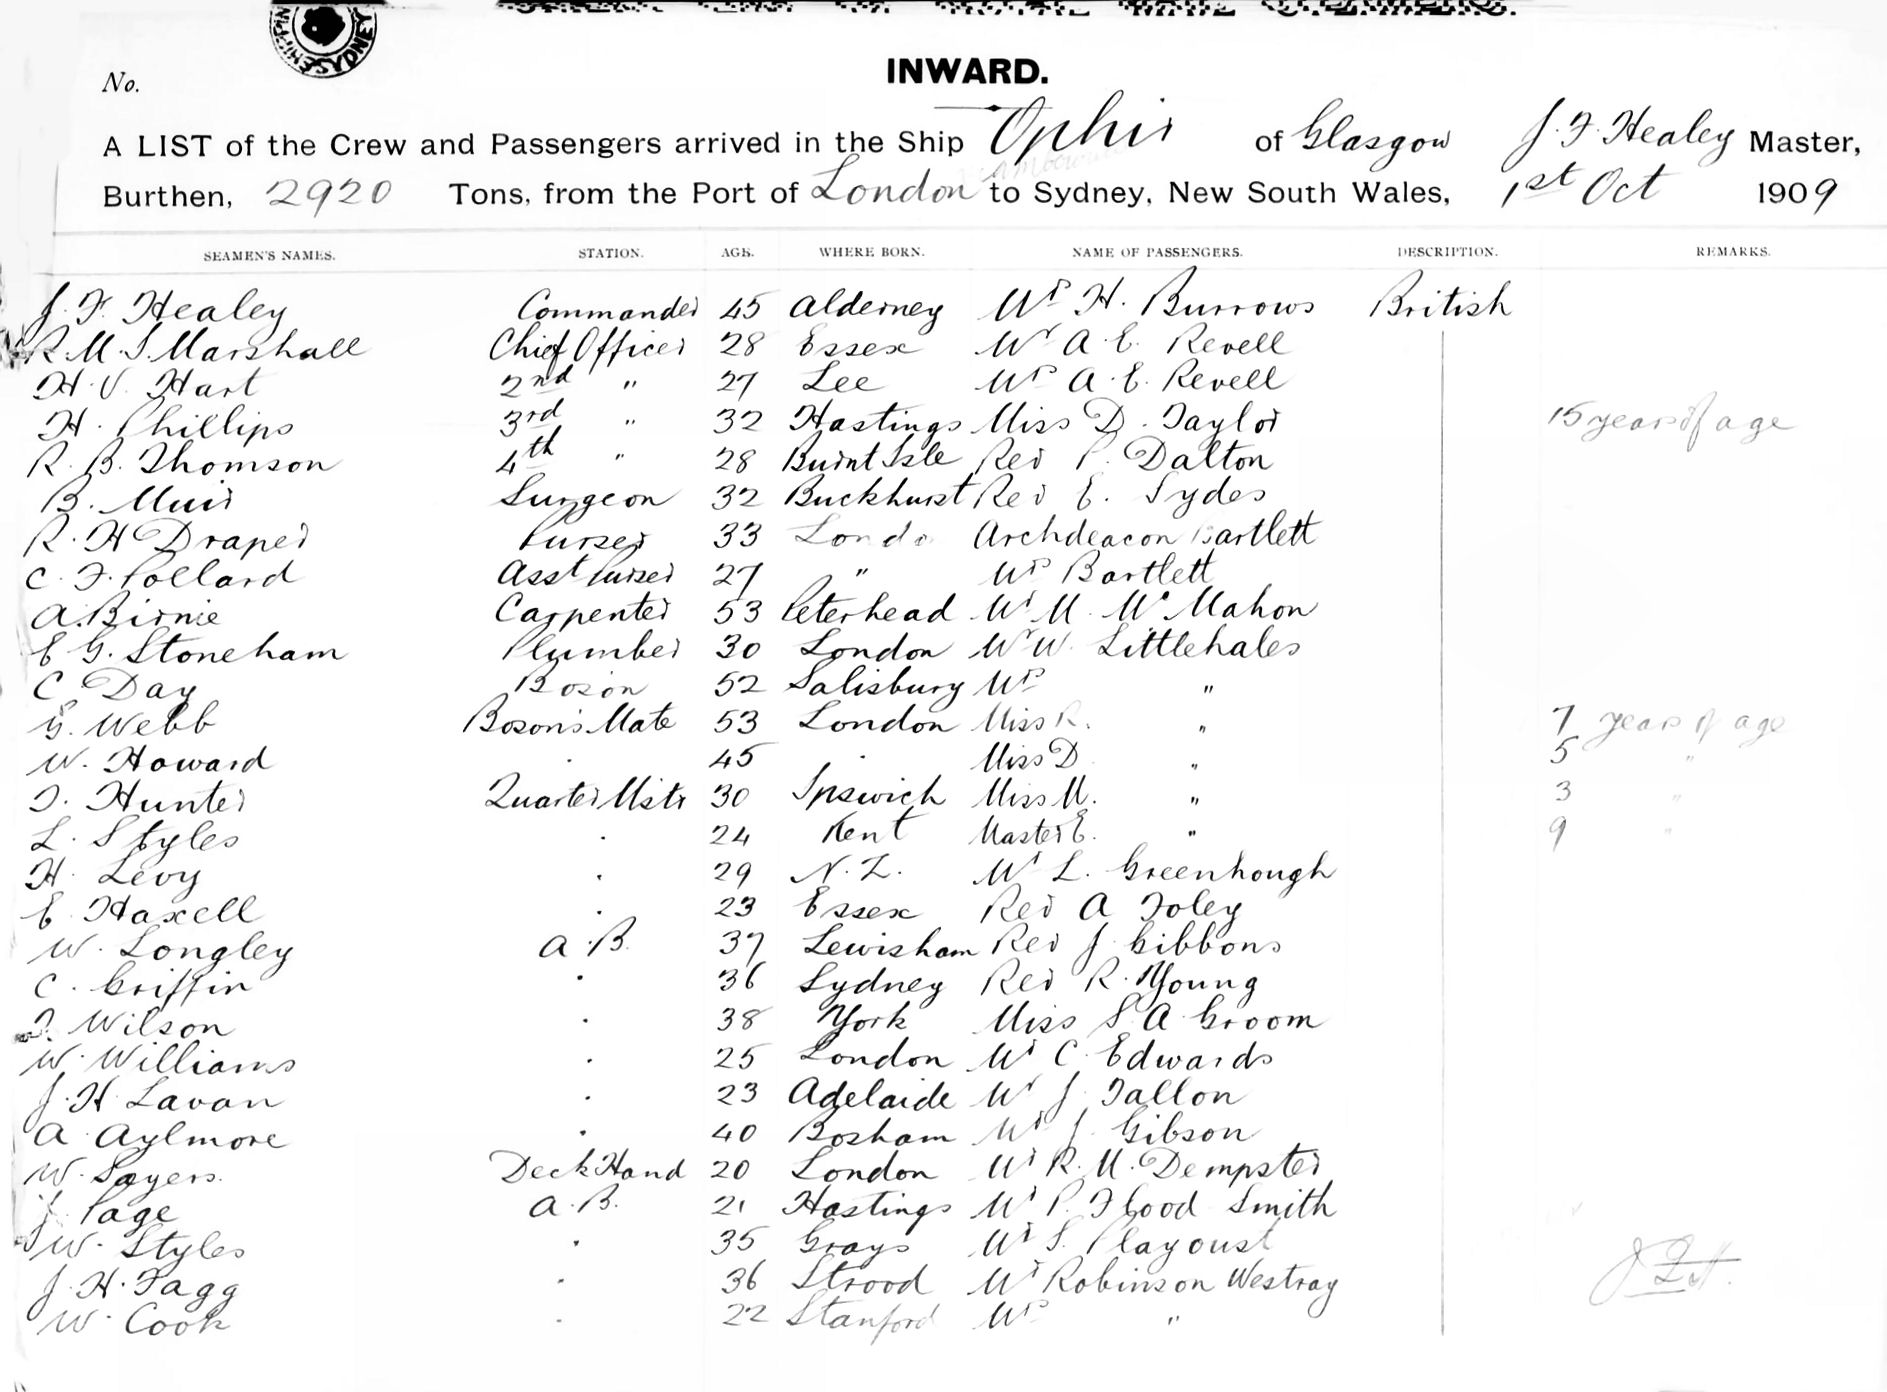 No.
INWARD.
A LIST of the Crew and Passengers arrived in the Ship Ophir of Glasgow J. F. Healey Master,
Burthen, 2920 Tons, from the Port of London to Sydney, New South Wales, 1st Oct 1909
SEAMEN'S NAMES. STATION. AGE. WHERE BORN. NAME OF PASSENGERS. DESCRIPTION. REMARKS.
J. F. Healey Commander 45 Alderney Mr H. Burrows British
R. M. S. Marshall Chief Officer 28 Essex Mr A. E. Revell
H. V. Hart 2nd " 27 Lee Mrs A. E. Revell
H. Phillips 3rd " 32 Hastings Miss D. Taylor 15 years of age
R. B. Thomson 4th " 28 Burnt Isle Rev P. Dalton
B. Muir Surgeon 32 Buckhurst Rev E. Sydes
R. H Draper Purser 33 Archdeacon Bartlett
C. F. Pollard Asst Purser 27 " Mrs Bartlett
A. Birnie Carpenter 53 Peterhead Mr M. McMahon
E G. Stoneham Plumber 30 London Mr W. Littlehales
C Day Boson 52 Salisbury Mrs "
G. Webb Boson's Mate 53 London Miss R. " 7 years of age
W. Howard . 45 . Miss D " 5 "
T. Hunter Quarter Mstr 30 Ipswich Miss M. " 3 "
L. Styles . 24 Kent Master E. " 9 "
H. Levy . 29 N. Z. Mr L. Greenhough
E Haxell . 23 Essex Rev A Foley
W. Longley A. B. 37 Lewisham Rev J Gibbons
C. Griffin . 36 Sydney Rev R. Young
Wilson . 38 York Miss S A Groom
W. Williams . 25 London Mr C. Edwards
J. H Lavan . 23 Adelaide Mr J Tallon
A Aylmore . 40 Bosham Mr J Gibson
W. Sayers. Deck Hand 20 London Mr R. M. Dempster
J. Page A. B. 21 Hastings Mr P. Flood Smith
W. Styles . 35 Grays Mr S. Playoust
J. H. Fagg . 36 Strood Mr Robinson Westray
W. Cook . 22 Stanford Mrs "